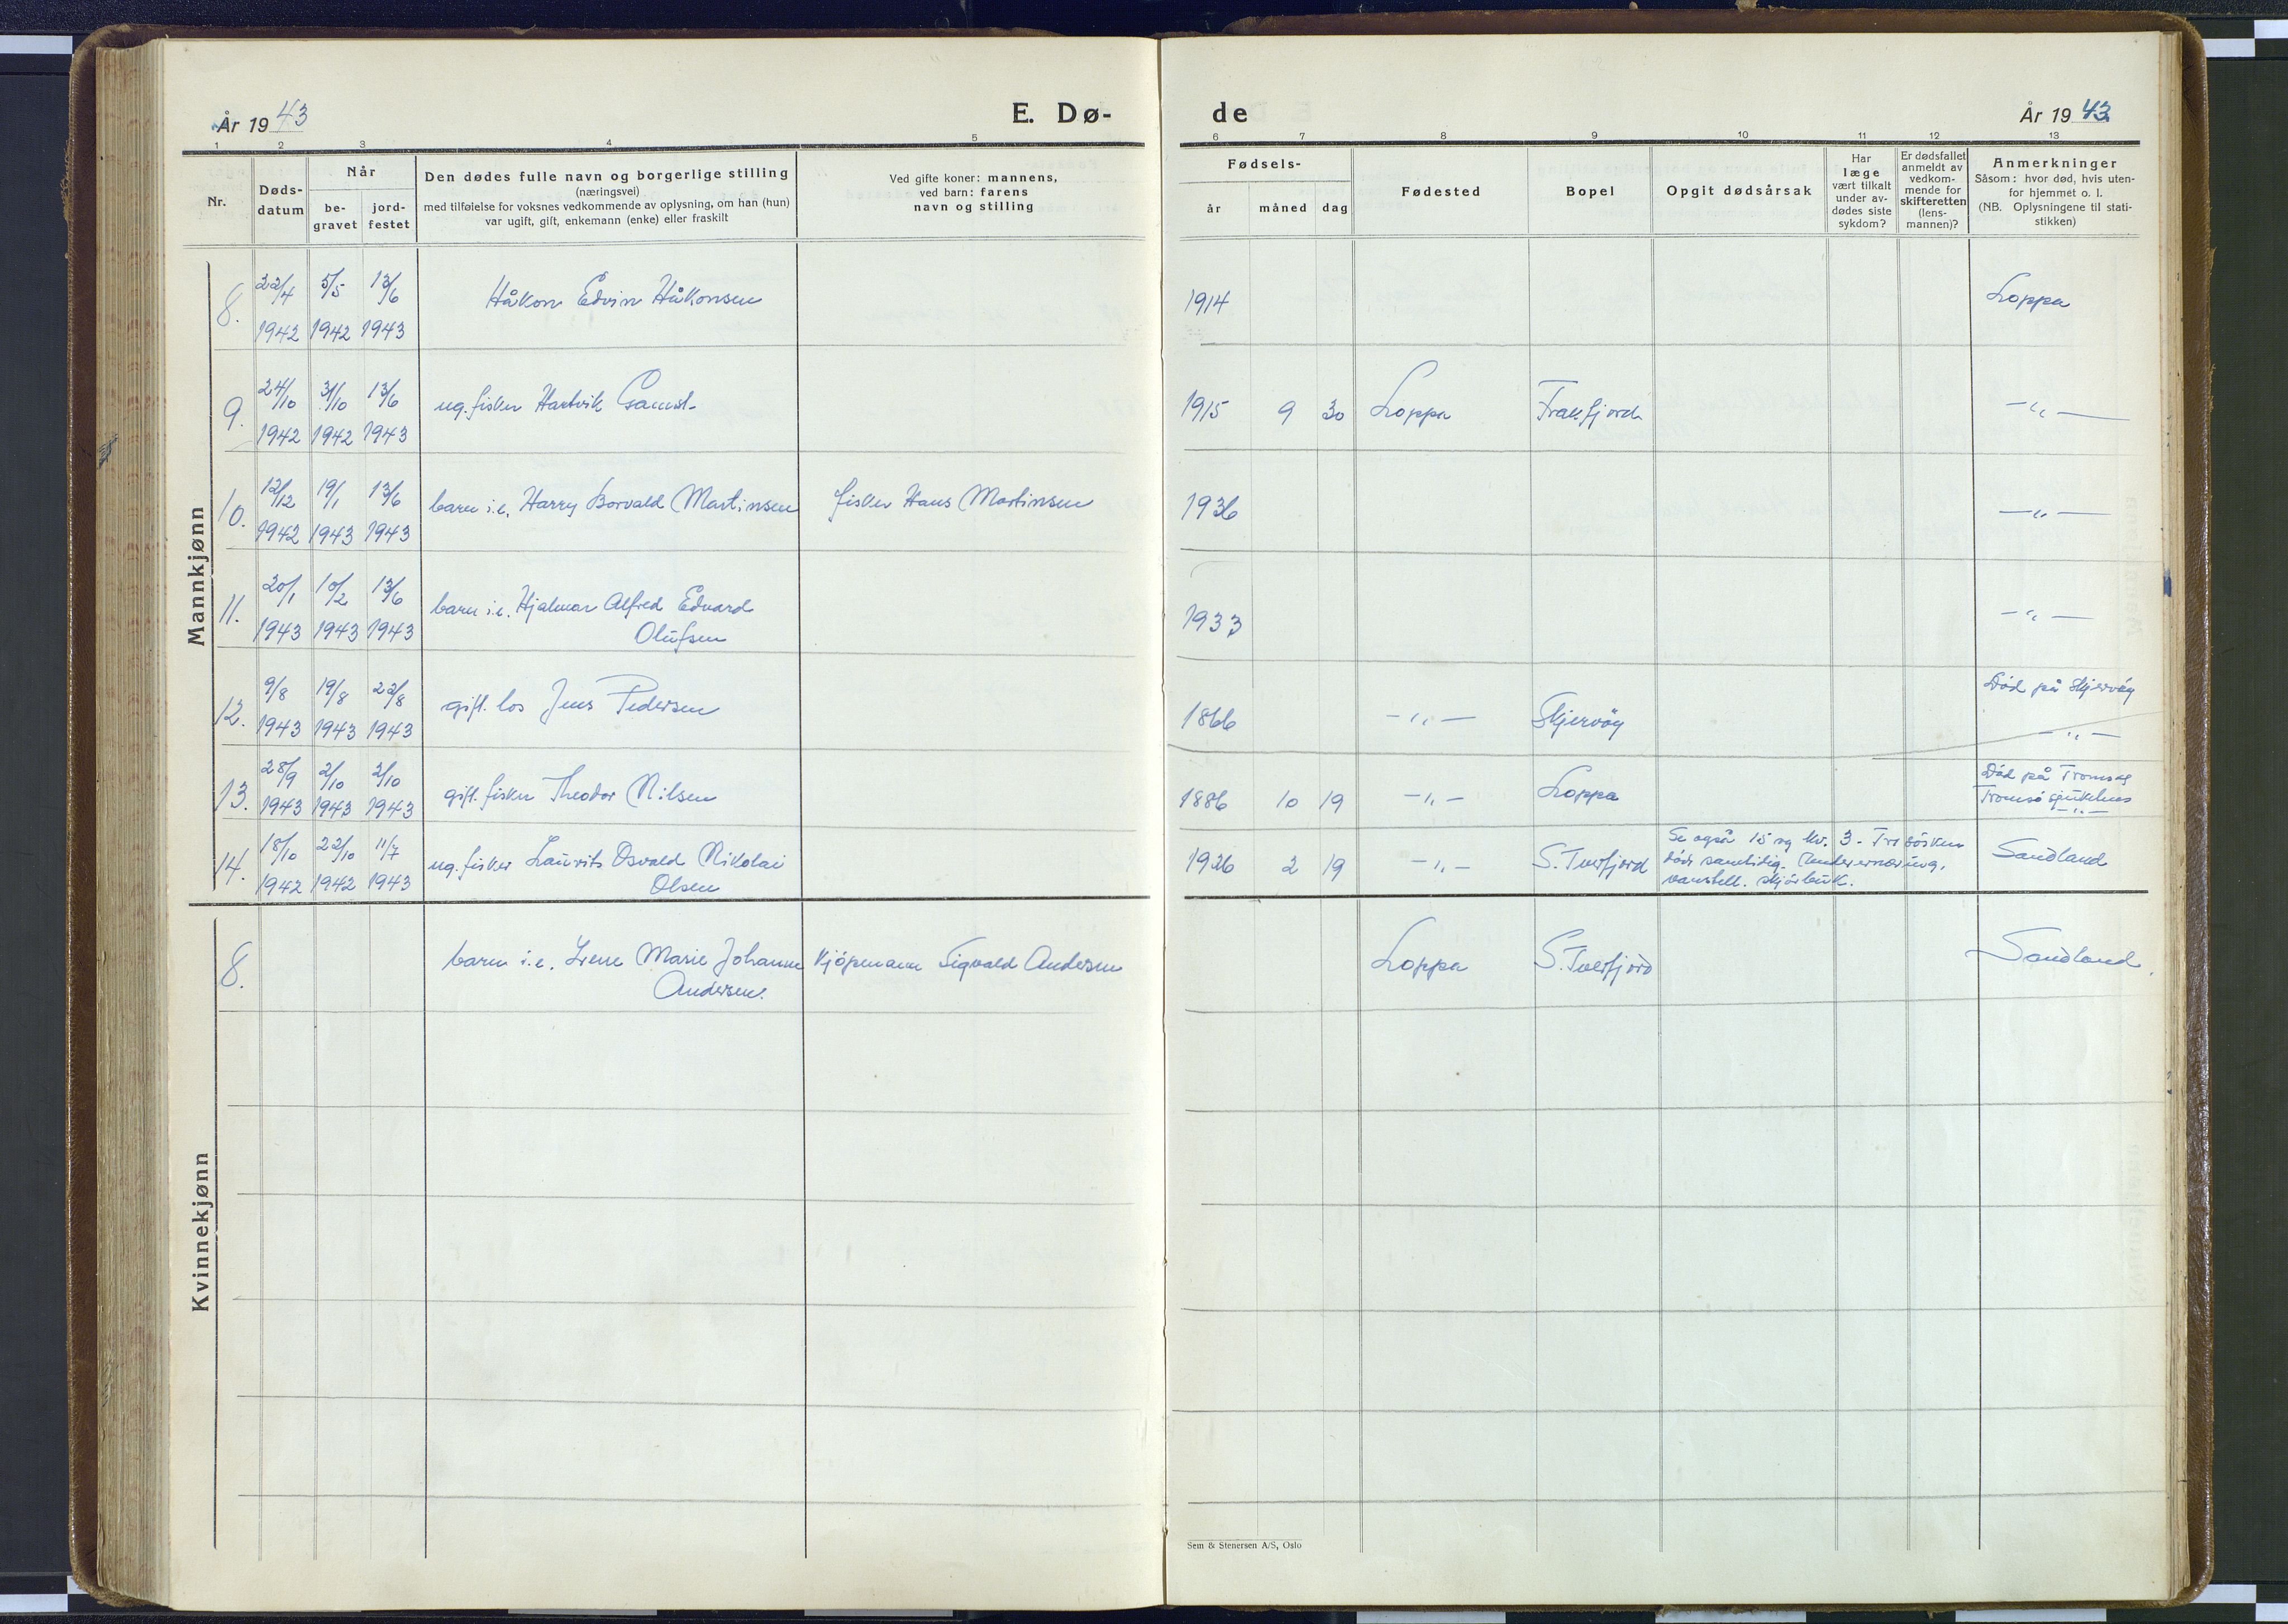 År 1943
E. Dø-
de
År 1943.
1 2 3 4 5 6 7 8 9 10 11 12 13
Nr.
Døds-
datum
Når
be-
gravet
jord-
festet
Den dødes fulle navn og borgerlige stilling
(næringsvei)
med tilføielse for voksnes vedkommende av oplysning, om han (hun)
var ugift, gift, enkemann (enke) eller fraskilt
Ved gifte koner: mannens,
ved barn: farens
navn og stilling
Fødsels-
år måned dag
Fødested
Bopel
Opgit dødsårsak
Har
læge
vært tilkalt
under av-
dødes siste
sykdom?
Er dødsfallet
anmeldt av
vedkom-
mende for
skifteretten
(lens-
mannen)?
Anmerkninger
Såsom: hvor død, hvis uten-
for hjemmet o. l.
(NB. Oplysningene til stati-
stikken)
Mannkjønn
8. 22/4 5/5 13/6 Håkon Edvin Håkonsen 1914 Loppa
1942 1942 1943
9. 24/10 31/10 13/6 ug. fisker Hartvik Gamst. 1915 9 30 Loppa Frakkfjord -"-
1942 1942 1943
10. 12/12 19/1 13/6 barn i.e. Harry Torvald Martinsen fisker Hans Martinsen 1936 -"-
1942 1943 1943
11. 20/1 10/2 13/6 barn i.e. Hjalmar Alfred Edvard 1933 -"-
1943 1943 1943 Olufsen
12. 9/8 19/8 22/8 gift. los Jens Pedersen 1866 -"- Skjervöy Död på Skjervöy
1943 1943 1943 -"-
13. 28/9 2/10 2/10 gift. fisker Theodor Nilsen 1886 10 19 -"- Loppa Död på
1943 1943 1943 Tromsö sjukehus
-"-
14. 18/10 22/10 11/7 ug. fisker Laurits Osvald Nikolai 1926 2 19 -"- S. Tverfjord Se også 15 og kv. 3. Tre sösken Sandland
1942 1942 1943 Olsen döde samtidig. Underernæring,
vanstell. skjörbuk.
Kvinnekjønn
8. barn i.e. Irene Marie Johanne Kjöpmann Sigvald Andersen Loppa S. Tverfjord Sandland.
Andersen.
Sem & Stenersen A/S, Oslo